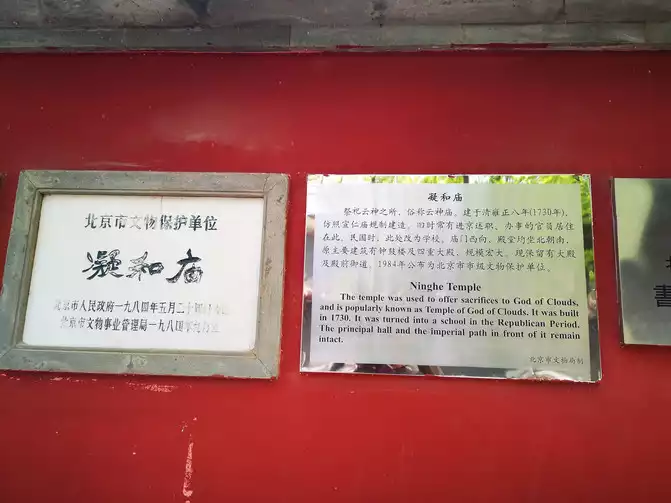 北京市文物保护单位
凝和庙
北京市人民政府一九八四年五月二十四日公布
北京市文物事业管理局一九八四年九月立
凝和庙
祭祀云神之所，俗称云神庙。建于清雍正八年(1730年)，
仿照宣仁庙规制建造。旧时常有进京述职、办事的官员居住
在此，民国时，此处改为学校。庙门西向，殿堂均坐北朝南，
原主要建筑有钟鼓楼及四重大殿，规模宏大。现保留有大殿
及殿前御道。1984年公布为北京市市级文物保护单位。
Ninghe Temple
The temple was used to offer sacrifices to God of Clouds,
and is popularly known as Temple of God of Clouds. It was built
in 1730. It was turned into a school in the Republican Period.
The principal hall and the imperial path in front of it remain
intact.
北京市文物局制
書